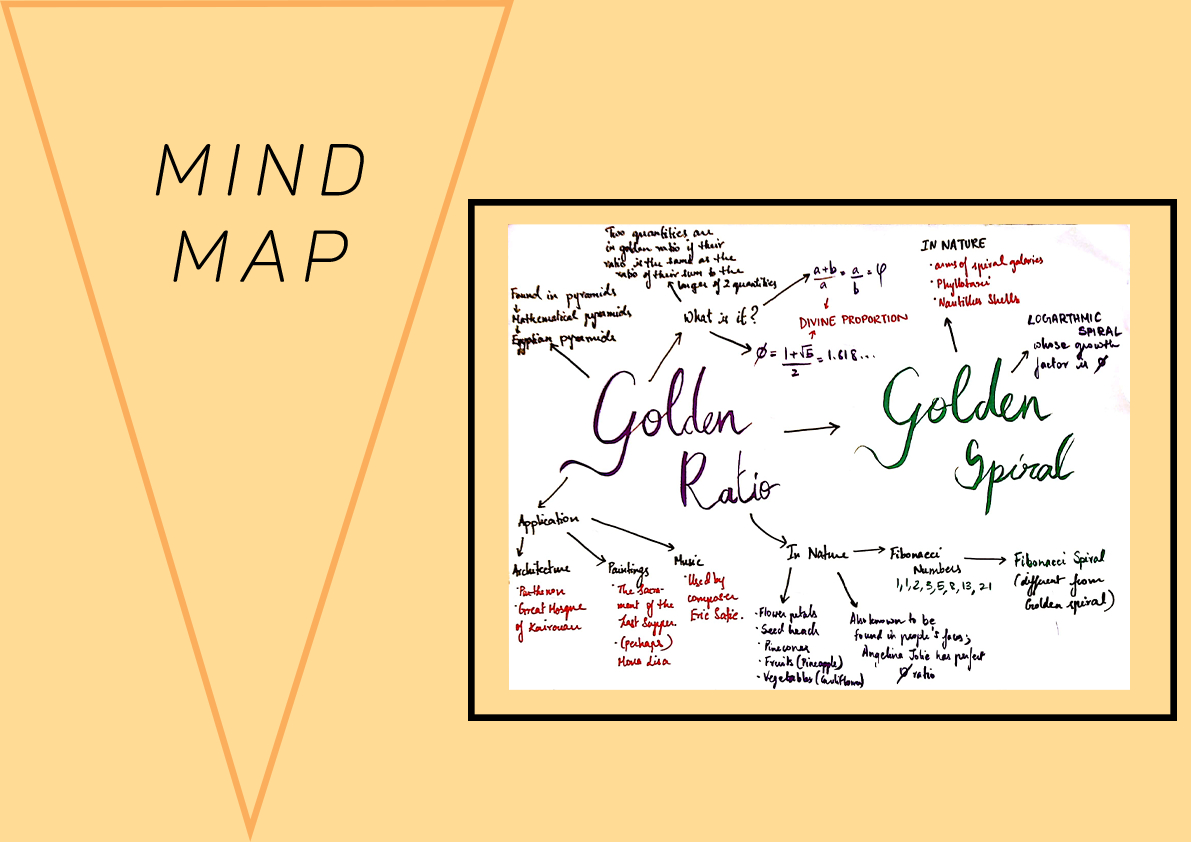 MIND
MAP
Two quantities are
in golden ratio if their
ratio is the same as the
ratio of their sum to the
larger of 2 quantities
Found in pyramids
Mathematical pyramids
Egyptian pyramids
What is it?
a+b/a = a/b = φ
DIVINE PROPORTION
Ø = 1+√5/2 = 1.618...
IN NATURE
· arms of spiral galaxies
· Phyllotaxis
· Nautilus Shells
LOGARTHMIC
SPIRAL
whose growth
factor is Ø
Golden
Ratio
Golden
Spiral
Application
Architecture
· Parthenon
· Great Mosque
of Kairouan
Paintings
· The Sacra-
ment of the
Last Supper.
· (perhaps)
Mona Lisa
Music
· Used by
composer
Eric Satie.
In Nature
· Flower petals
· Seed heads
· Pinecones
· Fruits (Pineapple)
· Vegetables (Cauliflower)
Also known to be
found in people's faces;
Angelina Jolie has perfect
Ø ratio
Fibonacci
Numbers
1,1,2,3,5,8,13,21
Fibonacci Spiral
(different from
Golden spiral)